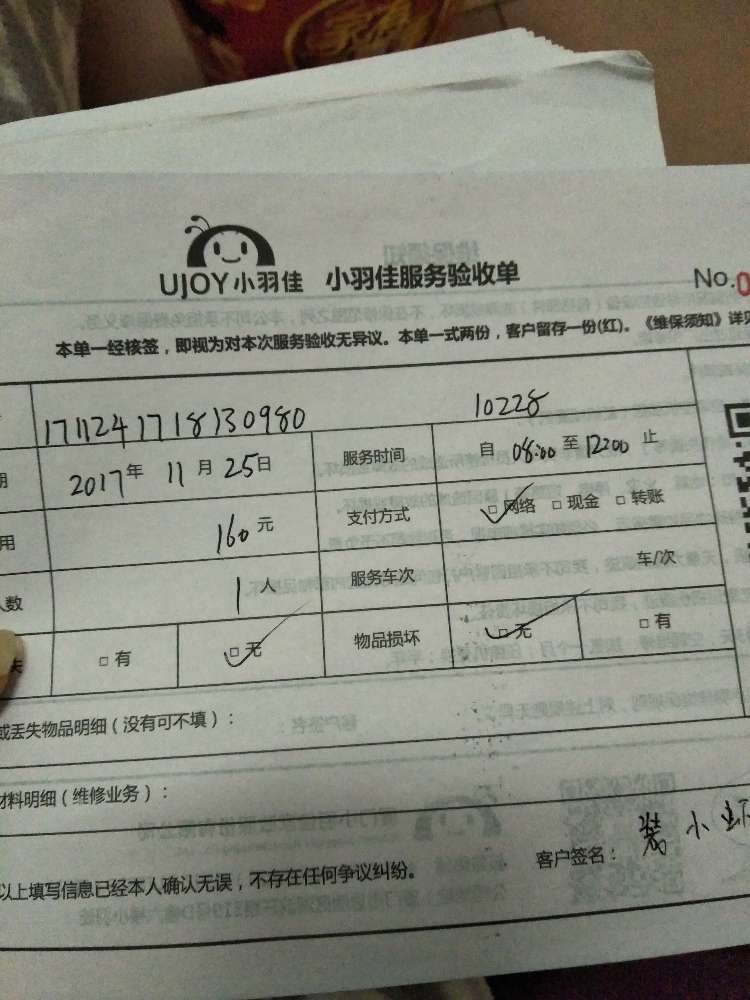 UJOY小羽佳 小羽佳服务验收单 No.0
本单一经核签，即视为对本次服务验收无异议。本单一式两份，客户留存一份(红)。《维保须知》详见
1711241718130980 10228
期 2017年 11月 25日 服务时间 自 08:00 至 12:00 止
用 160元 支付方式 □网络 □现金 □转账
人数 1人 服务车次 车/次
失 □有 □无 物品损坏 □无 □有
或丢失物品明细（没有可不填）：
材料明细（维修业务）：
以上填写信息已经本人确认无误，不存在任何争议纠纷。 客户签名： 小虾